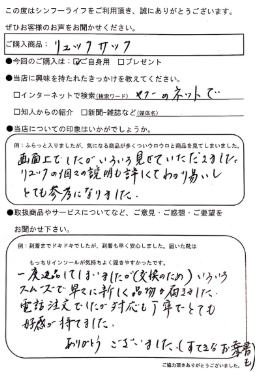 この度はシンフーライフをご利用頂き、誠にありがとうございます。
ぜひお客様のお声をお聞かせください。
ご購入商品：リュックサック
●今回のご購入は：☑ご自身用 □プレゼント
●当店に興味を持たれたきっかけを教えてください。
□インターネットで検索(検索ワード) ヤフーのネットで
□知人からの紹介 □新聞・雑誌など(媒体名)
●当店についての印象はいかがでしょうか。
例：ふらっと入りましたが、気になる商品が多くついウロウロと商品を見てしまいました。
画面上でしたがいろいろ見せていただきました。
リュックの個々の説明も詳しくてわかり易いし
とても参考になりました。
●取扱商品やサービスについてなど、ご意見・ご感想・ご要望を
お聞かせ下さい。
例：到着までドキドキでしたが、到着も早く安心しました。届いた靴は
もっちりインソールが気持ちよく履きやすかったです。
一度返品してしまいましたが(交換のため)いろいろ
スムーズで早々に新しく品物が届きました。
電話注文でしたが対応も丁寧でとても
好感が持てました。
ありがとうございました。(すてきなお葉書も)
ご協力頂きありがとうございました。